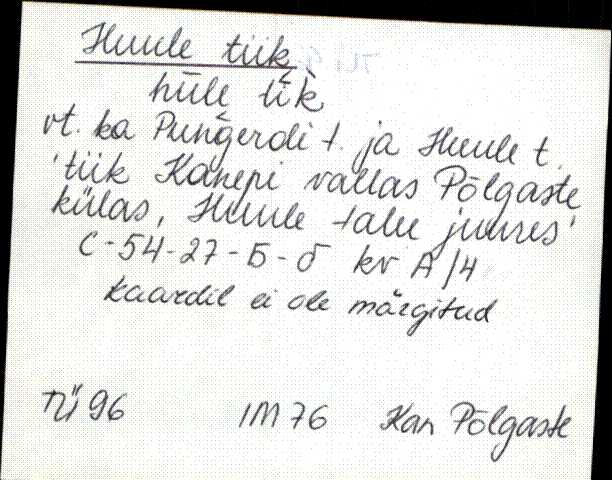 Huule tiik
hūle tīk̀
vt. ka Pungerdi t. ja Huule t.
'tiik Kanepi vallas Põlgaste
külas, Huule talu juures'
C-54-27-Б-б kv A/4
kaardil ei ole märgitud
TÜ 96 IM 76 Kan Põlgaste